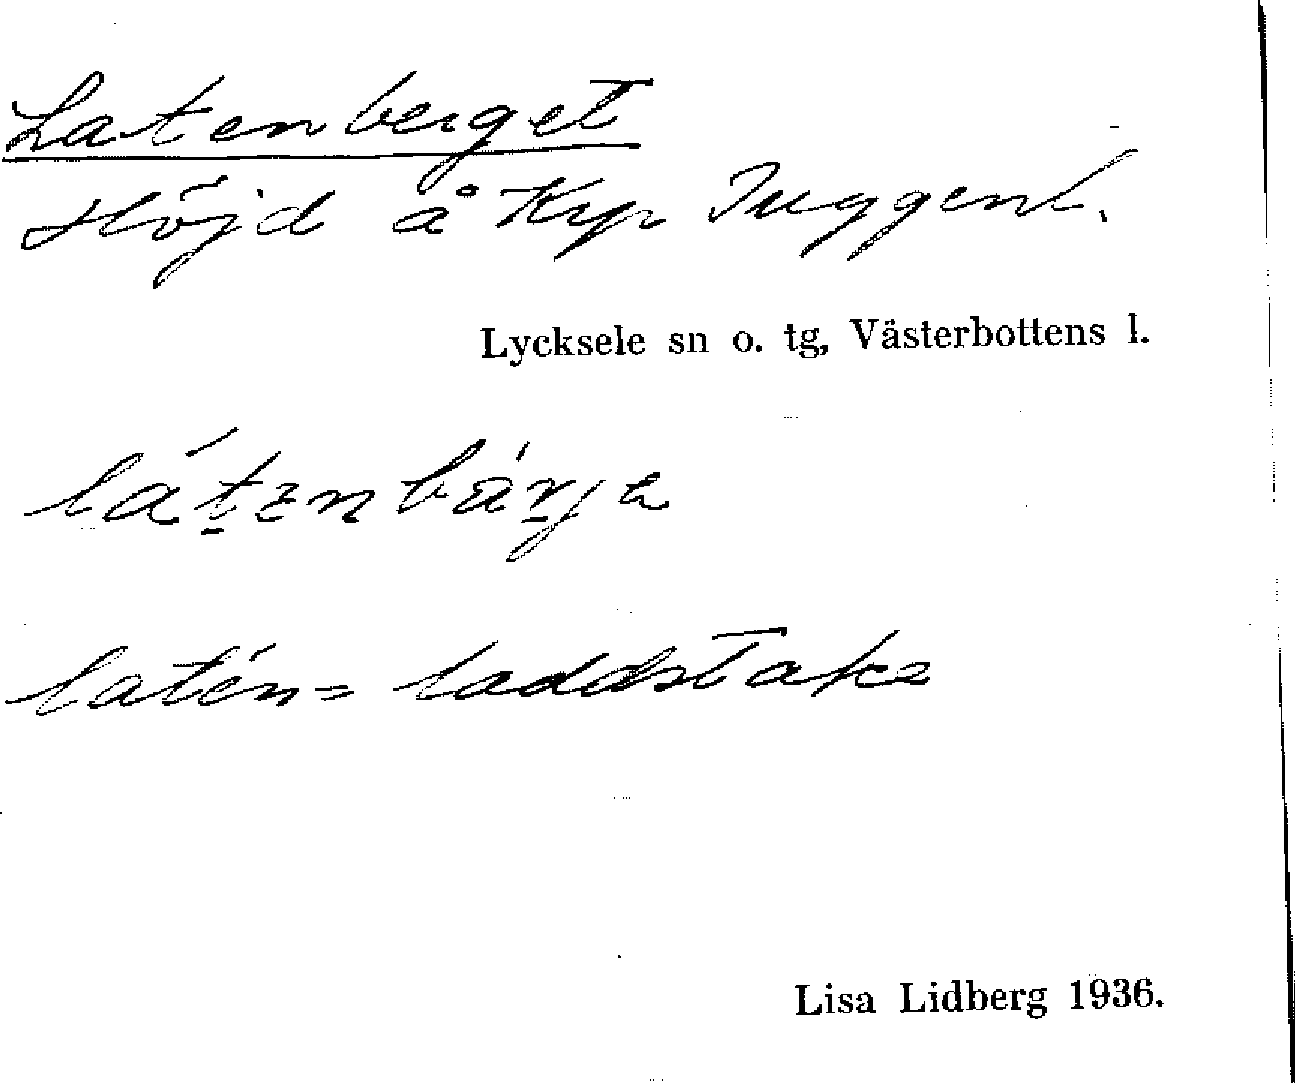 Latenberget
Höjd å Krp Tuggenl.
Lycksele sn o. tg, Västerbottens l.
látenbärje
latén = laddstake
Lisa Lidberg 1936.